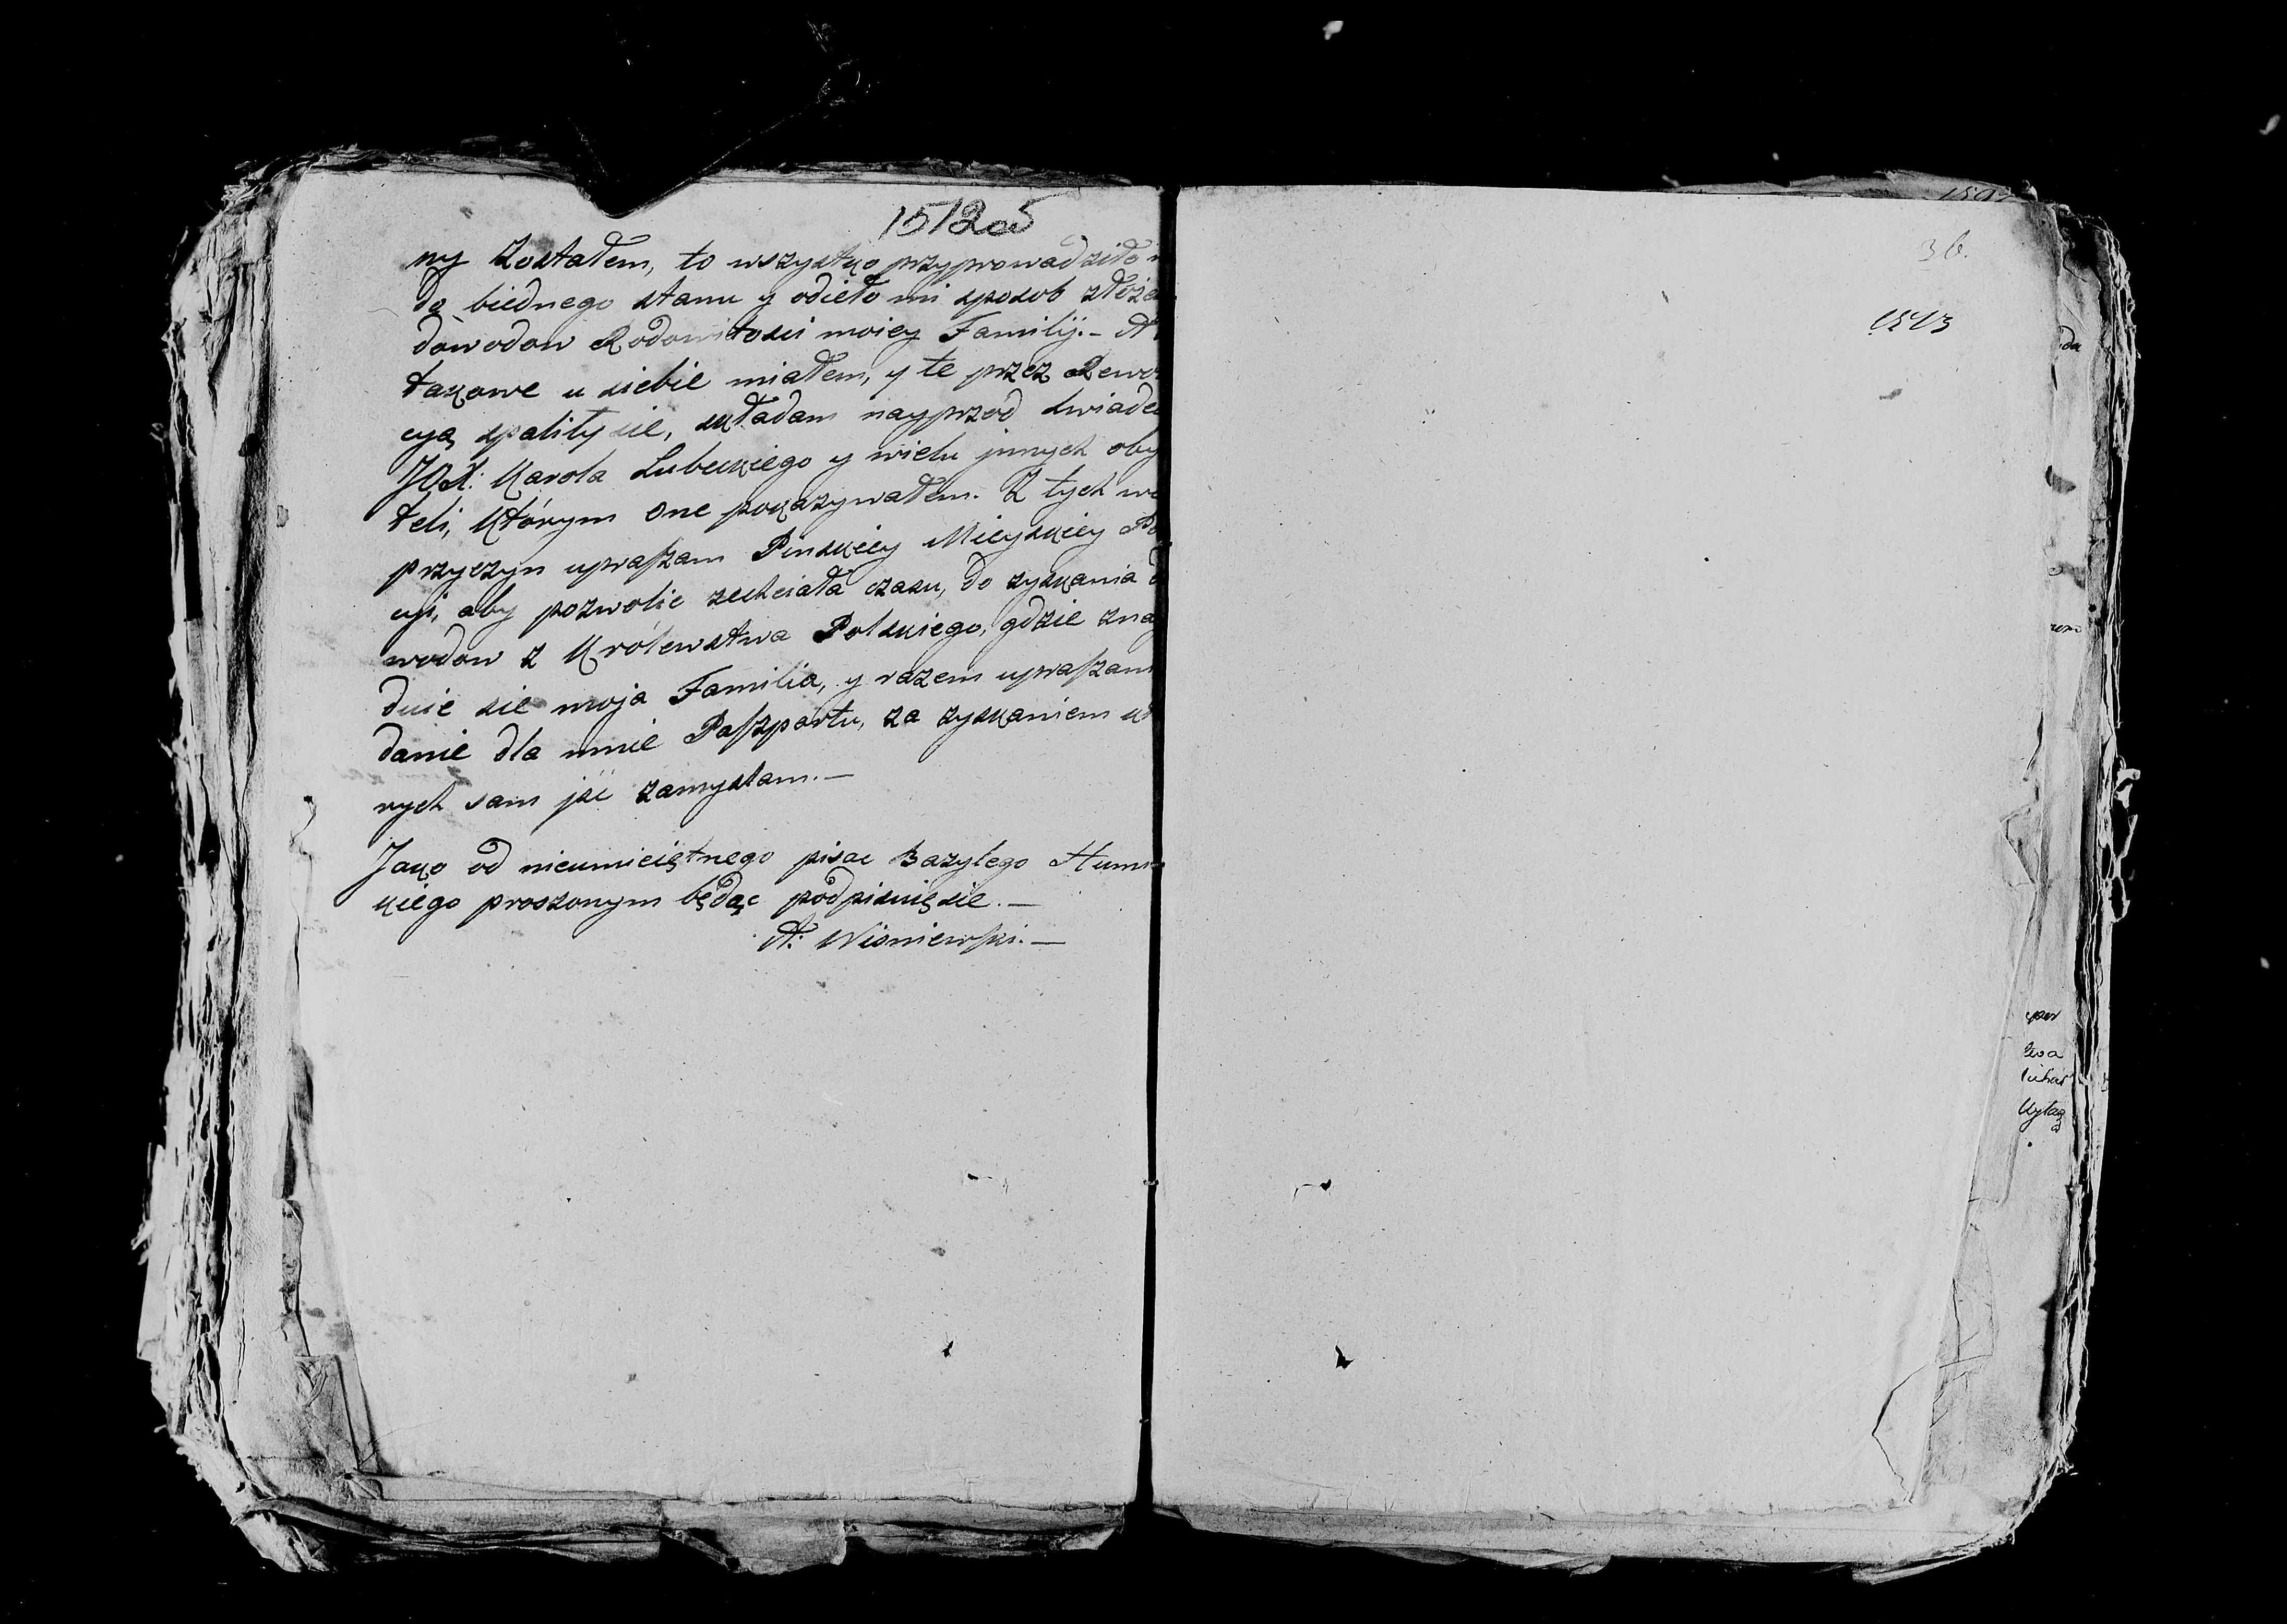 1512об
ny zostałem, to wszystko przyprowadziło
do biednego stanu y odieło mi sposob złoże
dowodow Rodowitosci moiey Familij.- A
takowe u siebie miałem, y te przez Rewo
cyą spality sie, składam nayprzod swiade
JOX: Karola Lubeckiego y wielu jnnych oby
teli, którym one pokazywałem. Z tych
przyczyn upraszam Pinskiey Mieyskiey Po
cyi, aby pozwolic zechciała czasu, do zyskania d
wodow z Królewstwa Polskiego, gdzie znay
duie sie moja Familia, y razem upraszam
danie dla mnie Paszportu, za zyskaniem
rych sam jsć zamyslam.—
Jako od nieumieiętnego pisac Bazylego Hum
kiego proszonym będąc podpisuięsie.—
A: Wisniewski.—
36.
1513